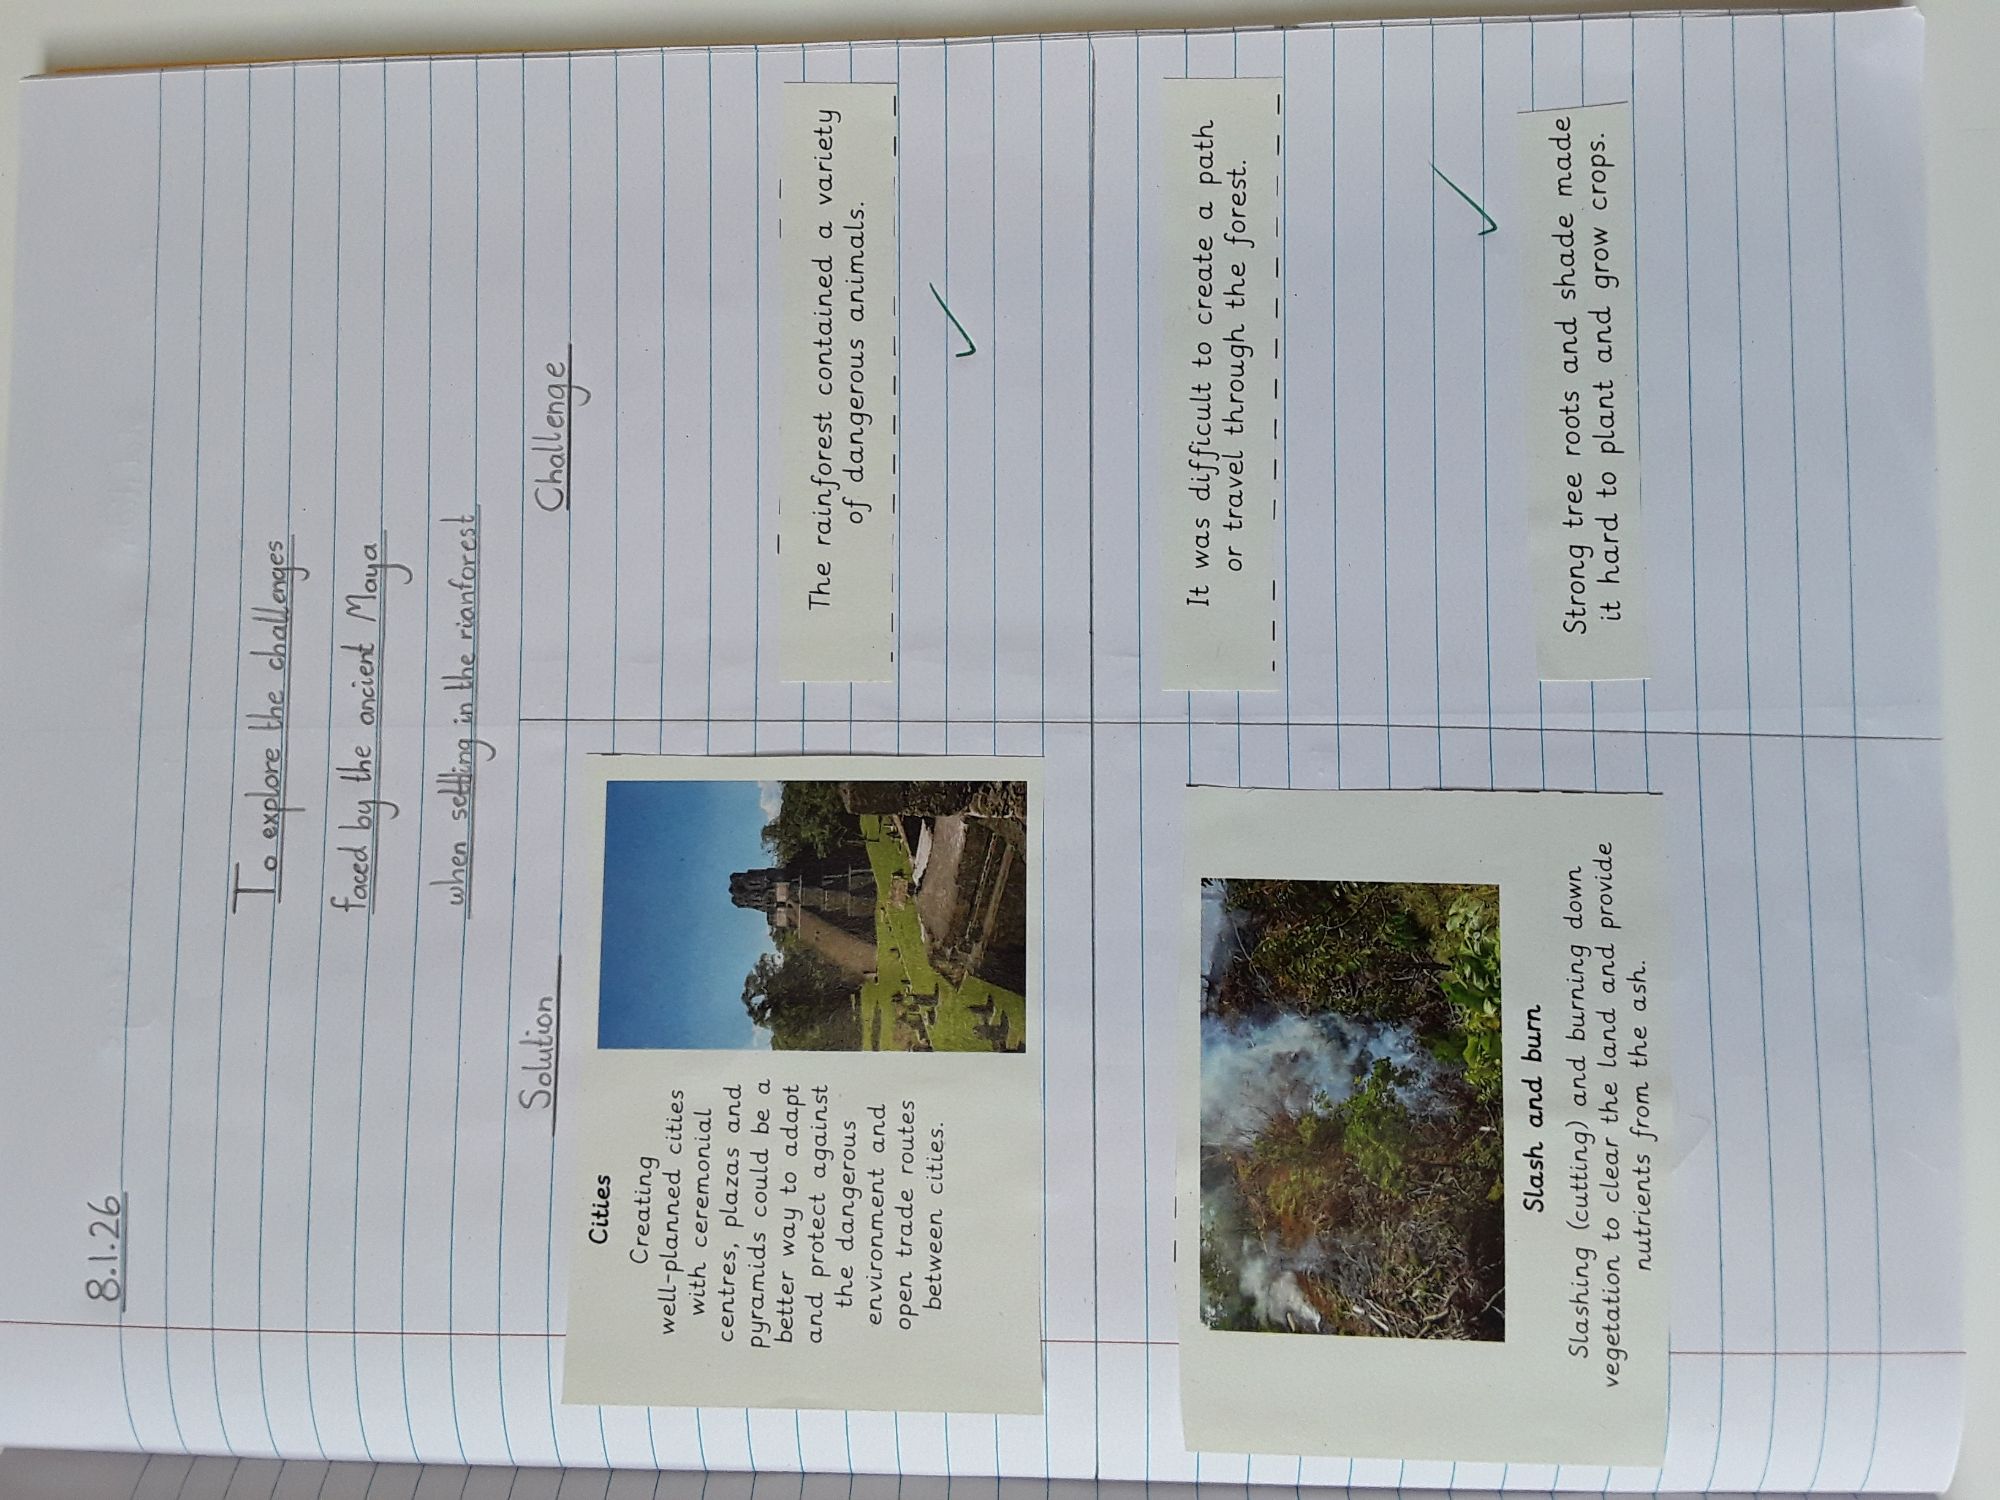 8.1.26
To explore the challenges
faced by the ancient Maya
when settling in the rianforest
Solution
Challenge
Cities
Creating
well-planned cities
with ceremonial
centres, plazas and
pyramids could be a
better way to adapt
and protect against
the dangerous
environment and
open trade routes
between cities.
The rainforest contained a variety
of dangerous animals.
Slash and burn
Slashing (cutting) and burning down
vegetation to clear the land and provide
nutrients from the ash.
It was difficult to create a path
or travel through the forest.
Strong tree roots and shade made
it hard to plant and grow crops.